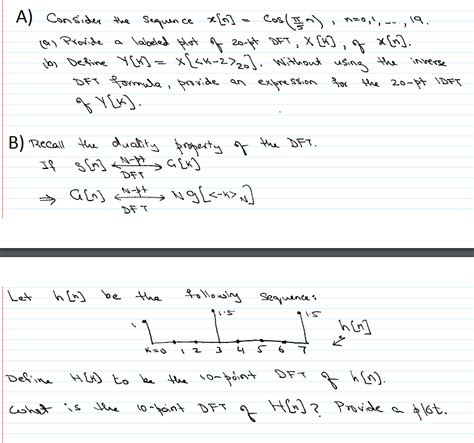 A) Consider the sequence x[n] = Cos(π/5 n), n=0,1, ..., 19.
(a) Provide a labeled plot of 20-pt DFT, X[k], of x[n].
(b) Define Y[k] = X[<k-2>20]. Without using the inverse
DFT formula, provide an expression for the 20-pt IDFT
of Y[k].
B) Recall the duality property of the DFT.
If g[n] N-pt DFT G[k]
⇒ G[n] N-pt DFT N g[<-k>N]
Let h[n] be the following sequence:
1 1.5 1.5 h[n]
k=0 1 2 3 4 5 6 7
Define H[k] to be the 10-point DFT of h[n].
What is the 10-point DFT of H[n]? Provide a plot.